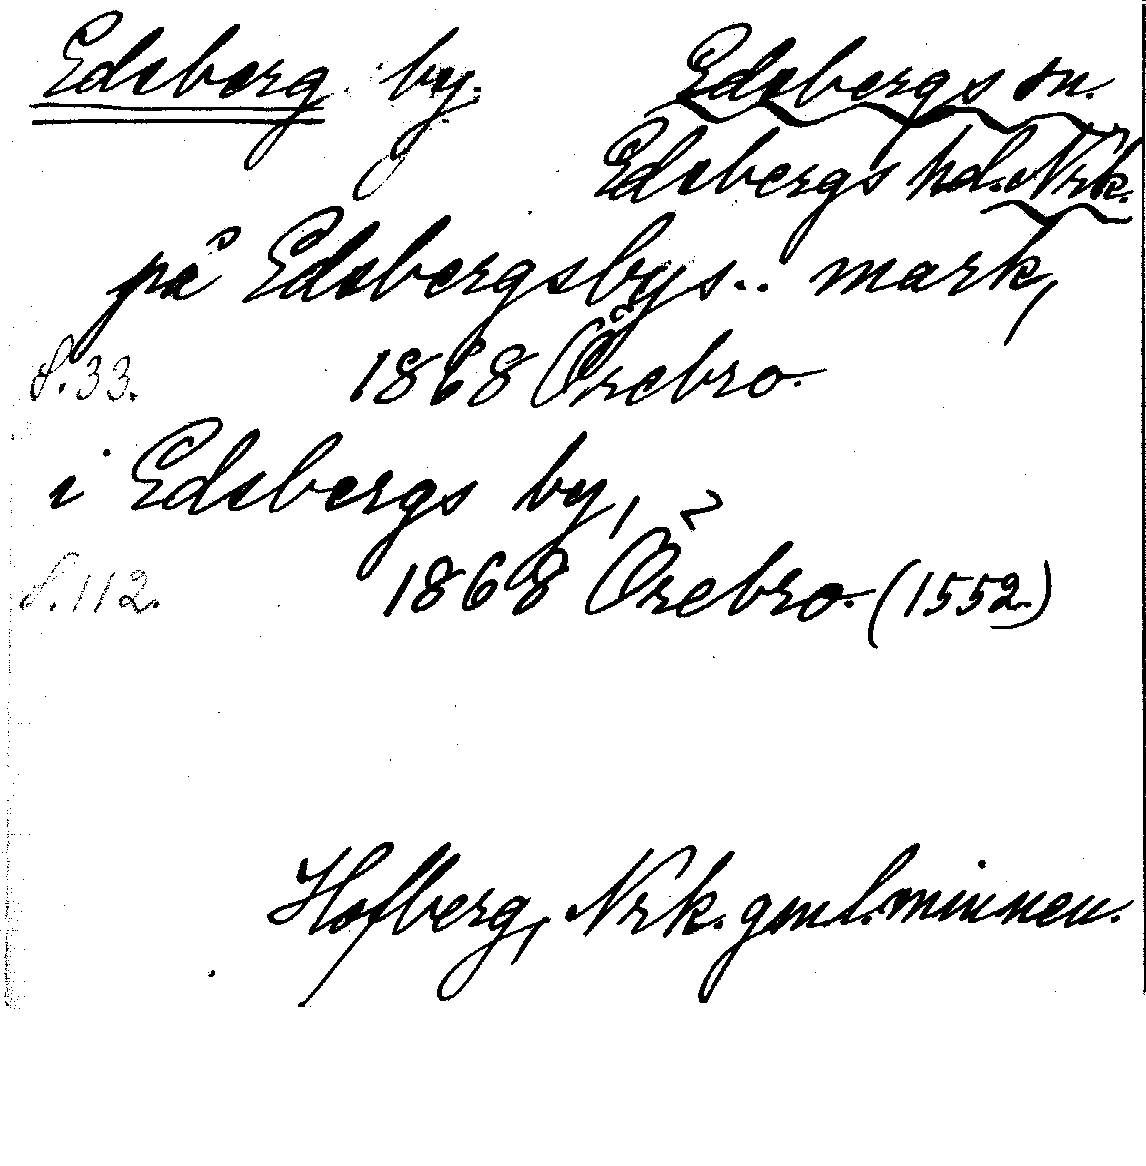 Edsberg by. Edsbergs sn.
Edsbergs hd. Nrk.
på Edsbergsbys.. mark,
S. 33. 1868 Örebro.
i Edsbergs by,
S. 112. 1868 Örebro. (1552.)
Hofberg, Nrk. gml. minnen.